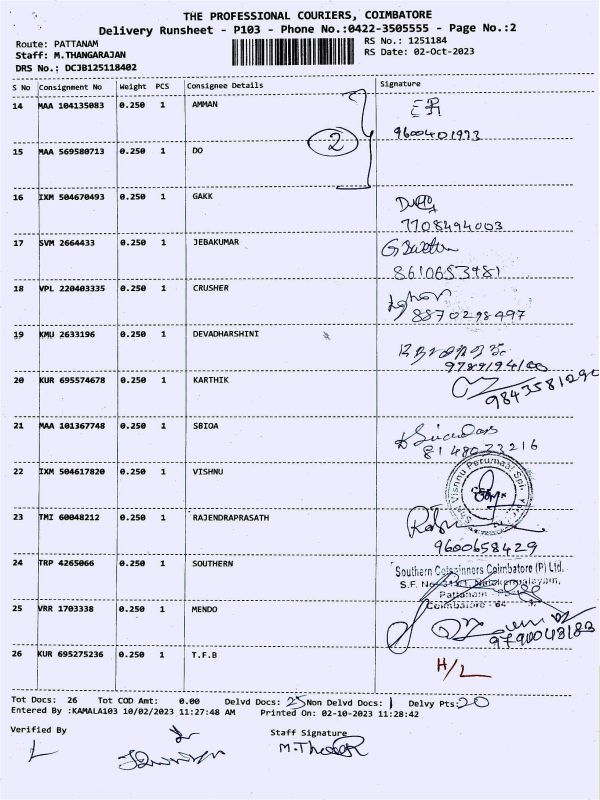 THE PROFESSIONAL COURIERS, COIMBATORE
Delivery Runsheet - P103 - Phone No.:0422-3505555 - Page No.:2
Route: PATTANAM
RS No.: 1251184
Staff: M.THANGARAJAN
RS Date: 02-Oct-2023
DRS No.: DCJB125118402
S No Consignment No Weight PCS Consignee Details Signature
14 MAA 104135083 0.250 1 AMMAN
9600401993
2
15 MAA 569580713 0.250 1 DO
16 IXM 504670493 0.250 1 GAKK
7708494003
17 SVM 2664433 0.250 1 JEBAKUMAR
8610653981
18 VPL 220403335 0.250 1 CRUSHER
8870298497
19 KMU 2633196 0.250 1 DEVADHARSHINI
20 KUR 695574678 0.250 1 KARTHIK
9843581290
21 MAA 101367748 0.250 1 SBIOA
8148033216
22 IXM 504617820 0.250 1 VISHNU
23 TMI 60048212 0.250 1 RAJENDRAPRASATH
9600658429
24 TRP 4265066 0.250 1 SOUTHERN
Southern Coimbatore (P) Ltd.
S.F. No
Pattanam
Coimbatore - 64
25 VRR 1703338 0.250 1 MENDO
9790048183
26 KUR 695275236 0.250 1 T.F.B
H/L
Tot Docs: 26 Tot COD Amt: 0.00 Delvd Docs: 25 Non Delvd Docs: 1 Delvy Pts: 20
Entered By :KAMALA103 10/02/2023 11:27:48 AM Printed On: 02-10-2023 11:28:42
Verified By
Staff Signature